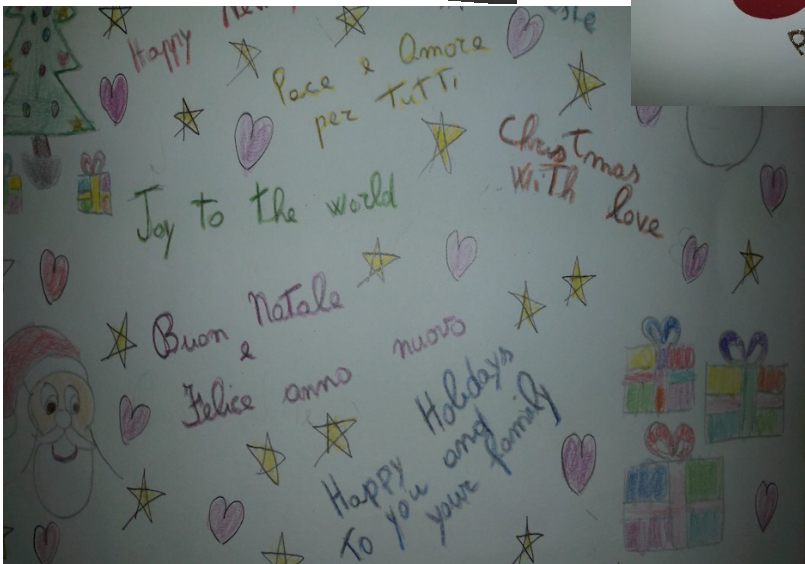 Happy
Pace e Amore
per TUTTi
Christmas
WiTH love
Joy to the world
Buon Natale
e
Felice anno nuovo
Happy Holidays
To you and
your family